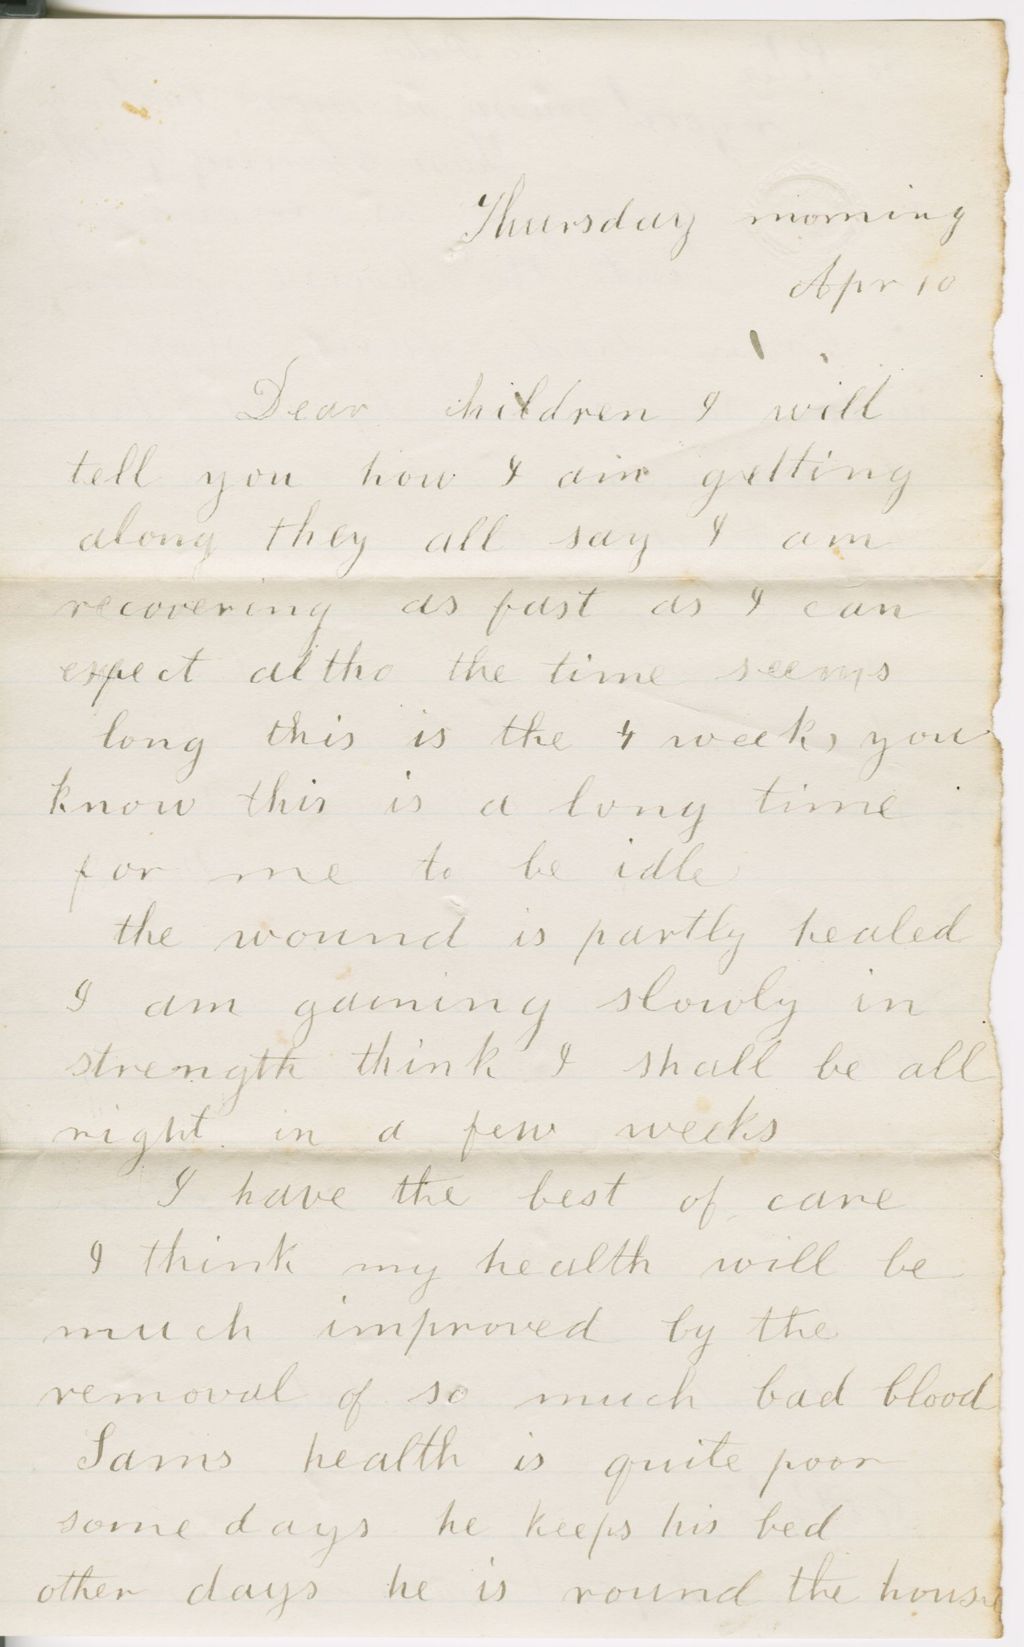 Thursday morning
Apr 10
Dear children I will
tell you how I am getting
along they all say I am
recovering as fast as I can
expect altho the time seems
long this is the 4 weeks you
know this is a long time
for me to be idle
the wound is partly healed
I am gaining slowly in
strength think I shall be all
right in a few weeks
I have the best of care
I think my health will be
much improved by the
removal of so much bad blood
Sams health is quite poor
some days he keeps his bed
other days he is round the house